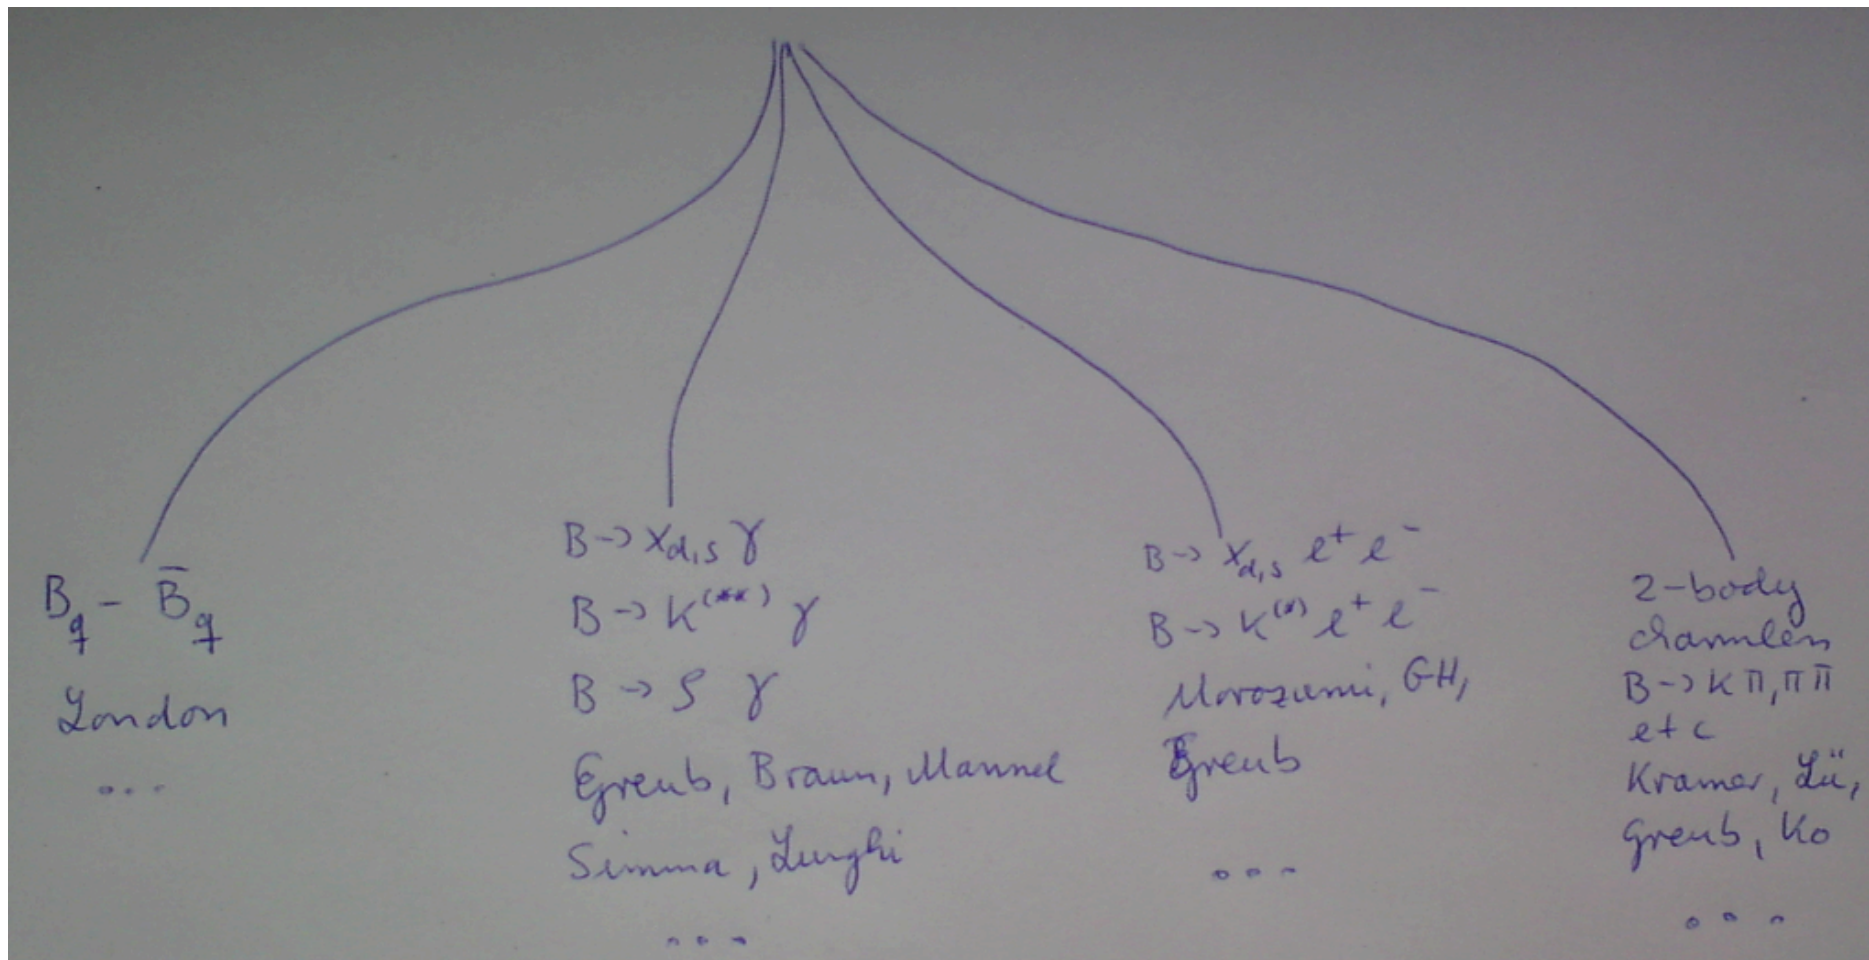 B_q - B̄_q
London
...
B → X_{d,s} γ
B → K^{(**)} γ
B → ρ γ
Greub, Braun, Mannel
Simma, Lunghi
...
B → X_{d,s} l⁺ l⁻
B → K^{(*)} l⁺ l⁻
Morozumi, GH,
Greub
...
2-body
charmless
B → K π, π π
etc
Kramer, Lü,
Greub, Ko
...